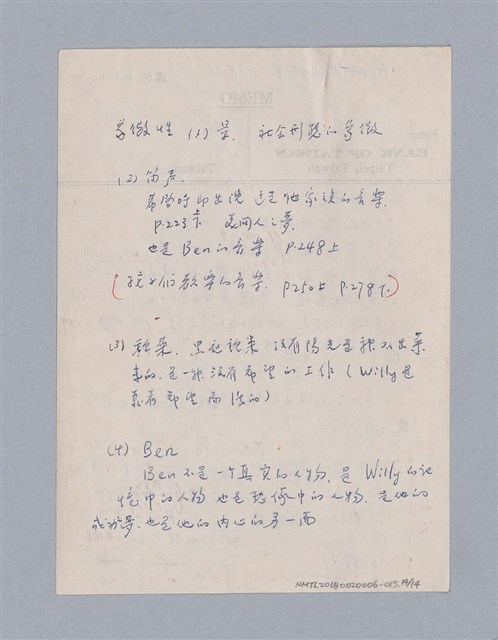 象徵性 (1) 景. 社会形態的象徵
(2) 笛声.
幕啓時即出現 這是他家族的音樂
p.223下 美国人之夢.
也是Ben的音樂 p.248上
(孩子們歡樂的音樂. p250上 p.278下.)
(3) 種菜. 黑夜種菜 没有陽光是種不出菜
来的. 是一種没有希望的工作 (Willy是
靠着希望而活的)
(4) Ben
Ben不是一个真实的人物. 是 Willy的記
憶中的人物 也是想像中的人物. 是他的
成功夢. 也是他的内心的另一面
MEMO
BANK OF TAIWAN
Taipei, Taiwan
NMTL20180020006-015 14/14